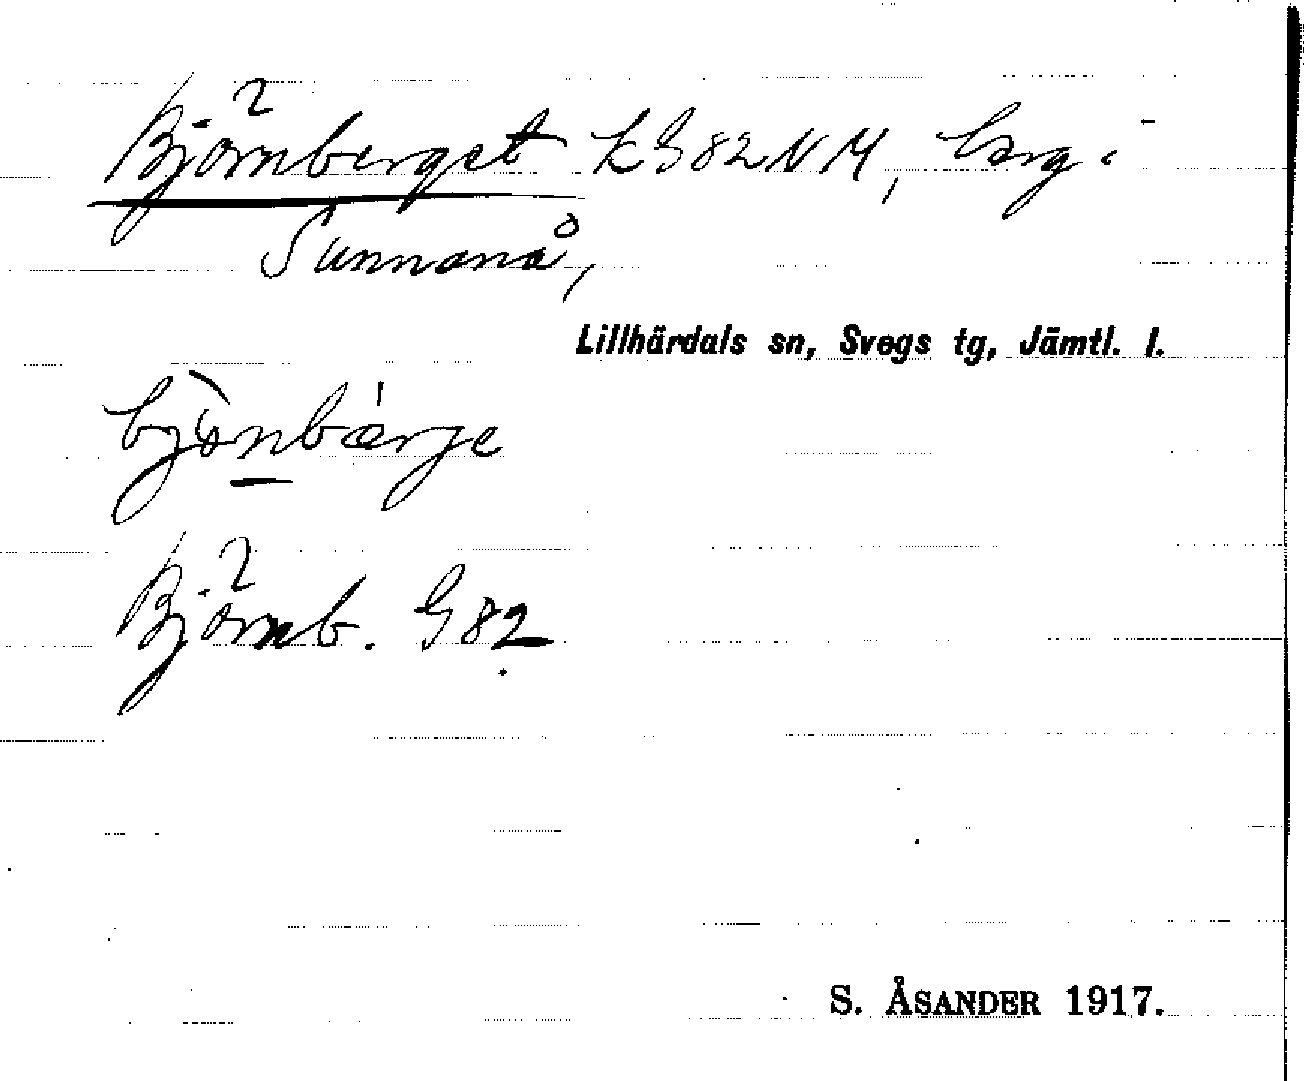 Björnberget k G82NM, berg i
Sunnanå,
Lillhärdals sn, Svegs tg, Jämtl. l.
bjònbárje
Björnb. G82
S. ÅSANDER 1917.